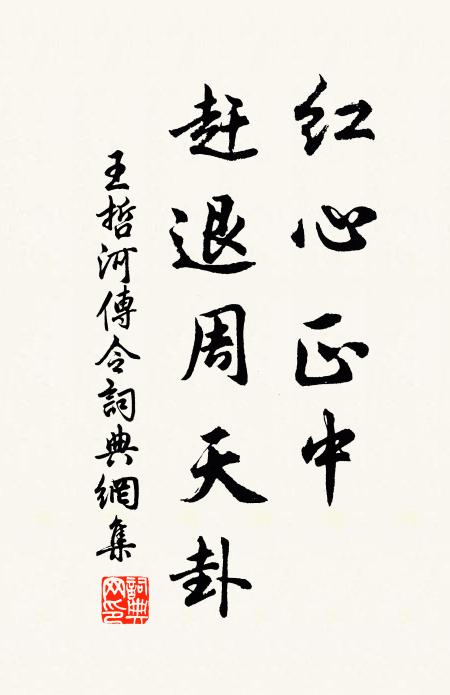 红心正中
赶退周天卦
王哲河傳令詞典網集
詞典網印